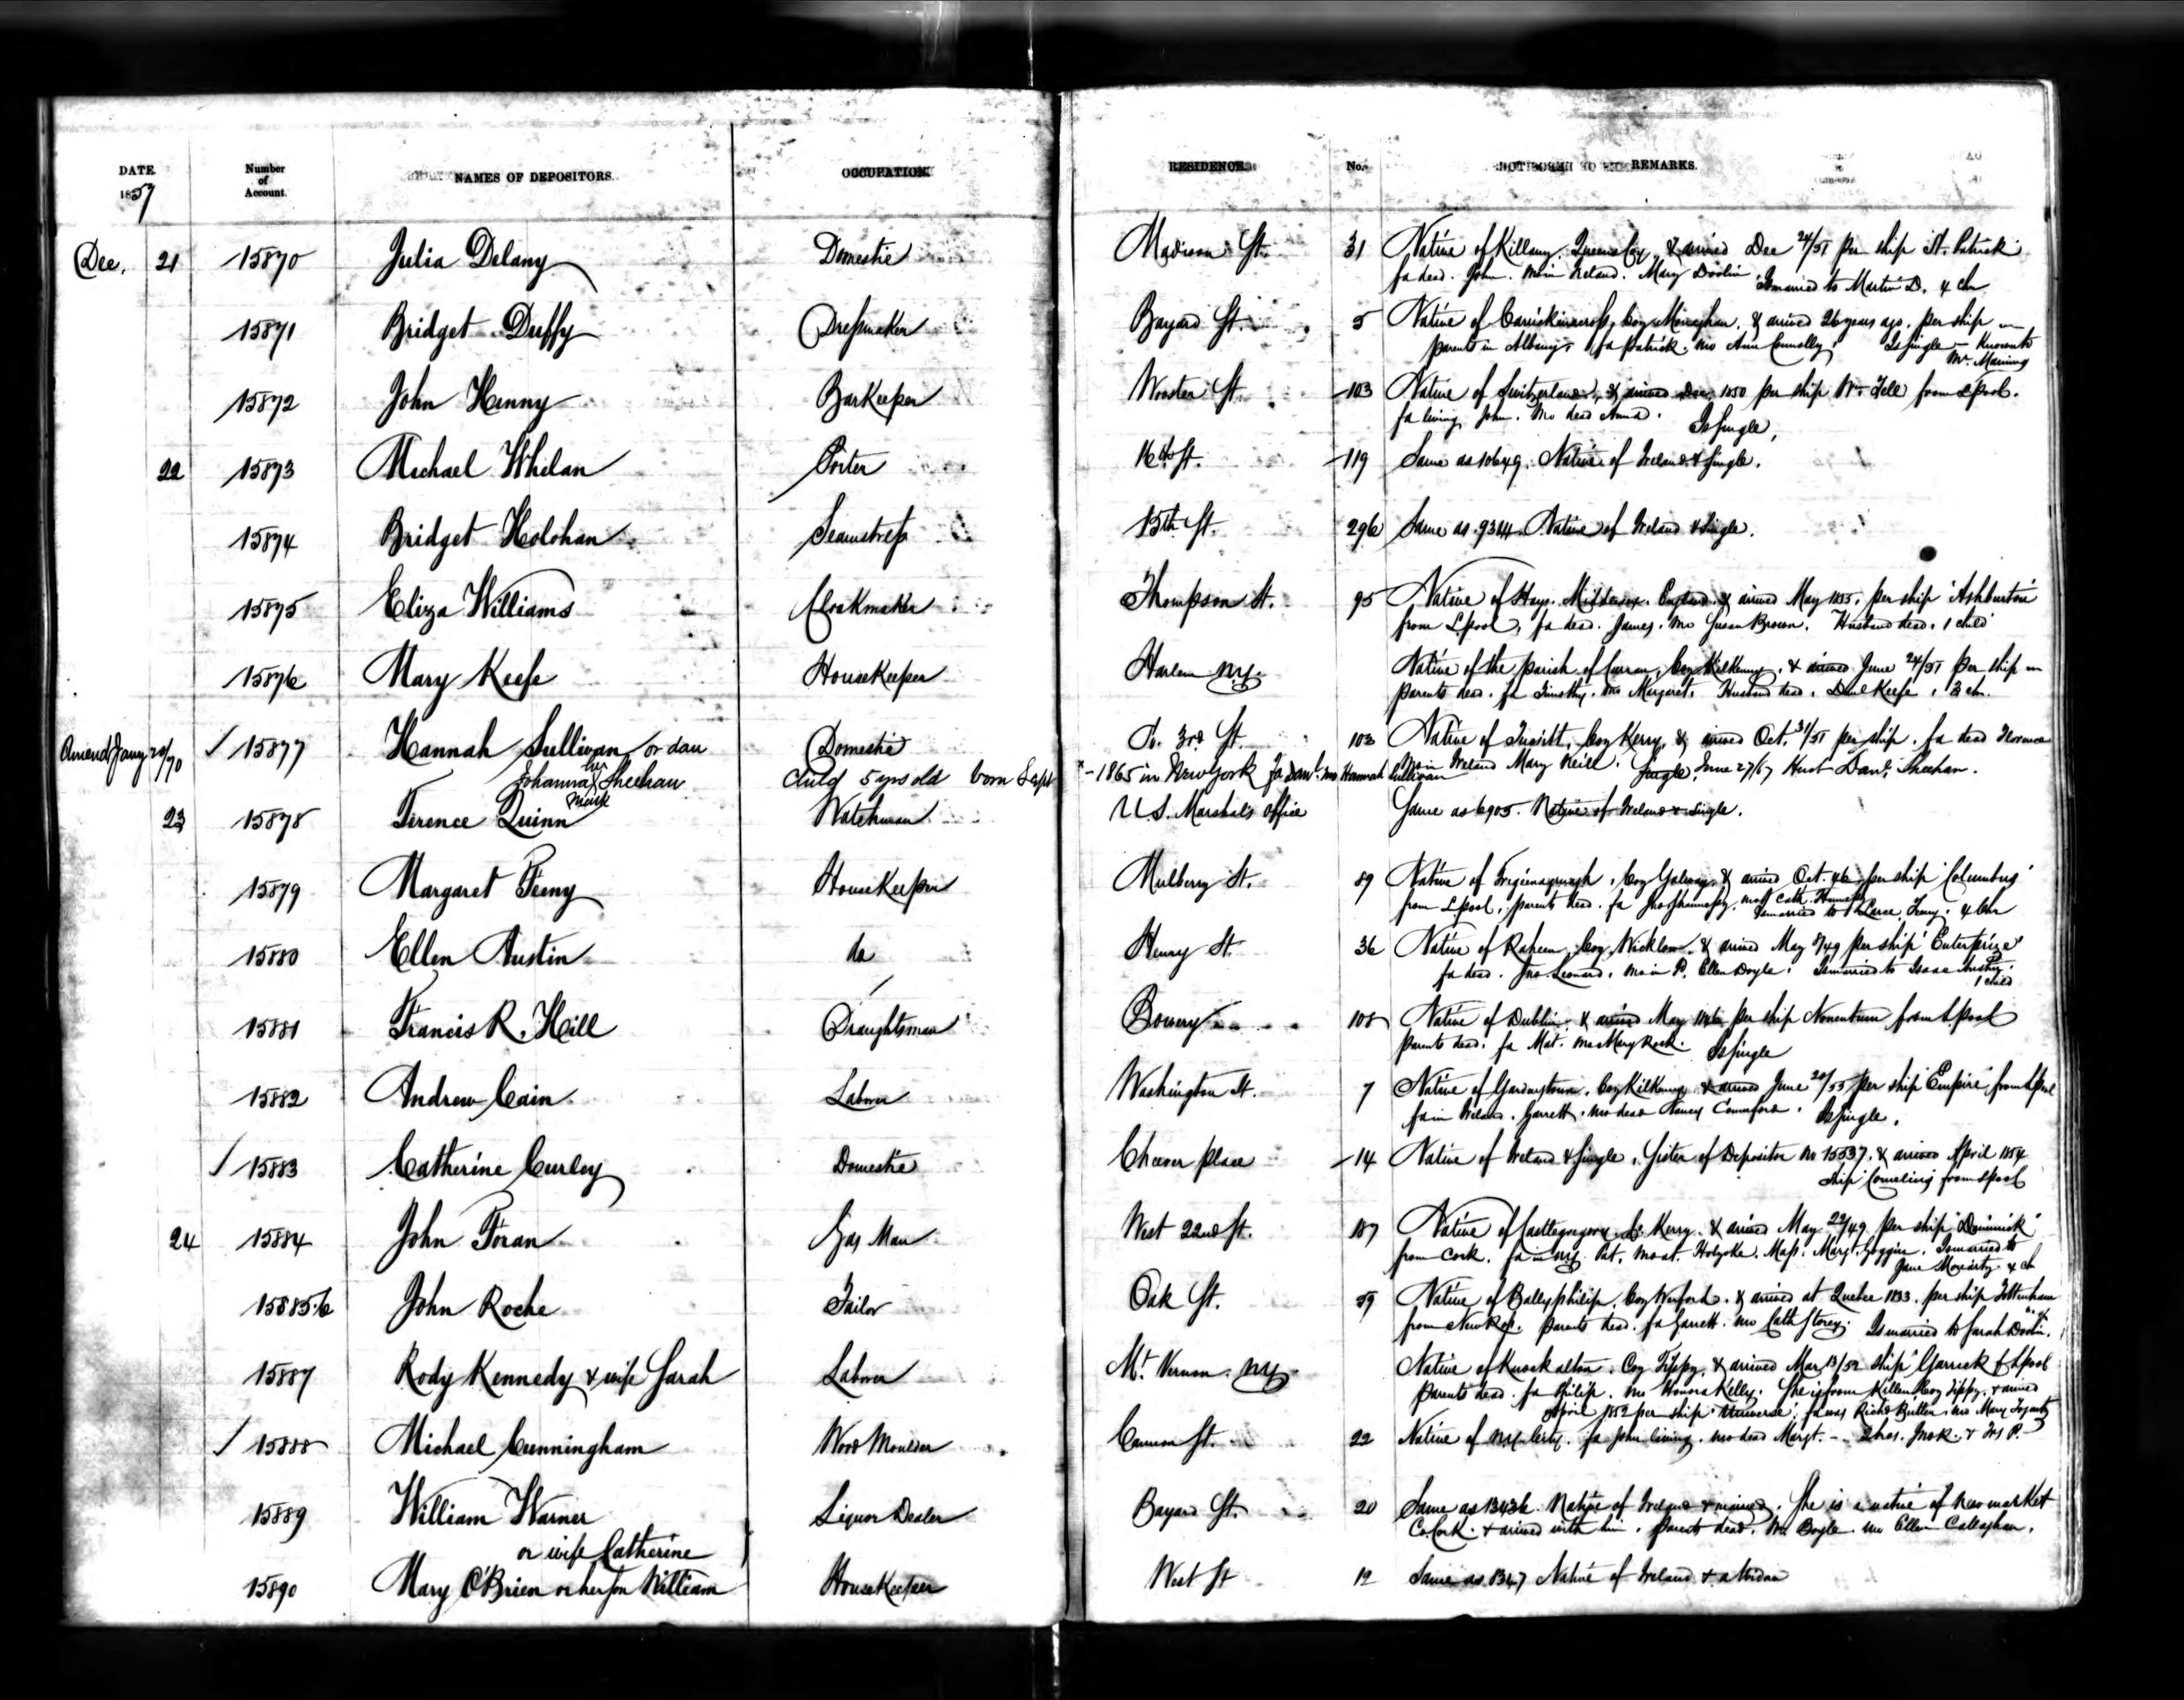 DATE
1857
Number of Account.
NAMES OF DEPOSITORS.
OCCUPATION.
RESIDENCE.
No.
REMARKS.
Dec. 21 15870 Julia Delany Domestic Madison St. 31 Native of Killany, Queens Coy, & arrived Dec 24/51 per ship St. Patrick
fa dead. John. Mo in Ireland. Mary Doolin. Is married to Martin D. 4 chn
15871 Bridget Duffy Dressmaker Bayard St. 5 Native of Carrickmacross, Coy Monaghan, & arrived 26 years ago. per ship —
parents in Albany. fa Patrick. mo Ann Connolly. Is single — Known to
Mr. Manning
15872 John Henny Barkeeper Wooster St. 103 Native of Switzerland, & arrived Dec. 1850 per ship Wm. Tell from Lpool.
fa living John. Mo dead Anna. Is single,
22 15873 Michael Whelan Porter 16th St. 119 Same as 10649. Native of Ireland & Single.
15874 Bridget Holohan Seamstress 15th St. 296 Same as 9344. Native of Ireland & Single.
15875 Eliza Williams Cloakmaker Thompson St. 95 Native of Hays. Middlesex. England. & arrived May 1855. per ship Ashburton
from Lpool, fa dead. James. Mo Susan Brown. Husband dead. 1 child
15876 Mary Keefe Housekeeper Harlem N.Y. Native of the parish of Curran, Coy Kilkenny, & arrived June 24/51 per ship —
parents dead. fa Timothy. mo Margaret. Husband dead. Danl Keefe, 3 chn.
Amend Jany 20/70 15877 Hannah Sullivan or dau Domestic So. 3rd St. 103 Native of Coy Kerry, & arrived Oct. 31/51 per ship. fa dead Florence
Mo in Ireland Mary Neill. Single. June 27/67 Husb Danl. Sheehan.
Johanna her mark Sheehan child 5 yrs old born Sept - 1865 in New York fa Danl. mo Hannah Sullivan
23 15878 Terence Quinn Watchman U.S. Marshals Office Same as 6905. Native of Ireland & single.
15879 Margaret Feeny Housekeeper Mulberry St. 89 Native of Coy Galway, & arrived Oct. 46 per ship Columbus
from Lpool, parents dead. fa mo Cath. Is married to Feeny. 4 chn
15880 Ellen Austin do Henry St. 36 Native of Raheen, Coy Wicklow, & arrived May 8/49 per ship Enterprize
fa dead. Jno Leonard. Mo in Ellen Doyle. Is married to Isaac Austin.
1 child
15881 Francis R. Hill Draughtsman Bowery 108 Native of Dublin, & arrived May per ship from Lpool
parents dead. fa Mat. mo Mary Rock. Is single
15882 Andrew Cain Laborer Washington St. 7 Native of Coy Kilkenny & arrived June 20/55 per ship Empire from Lpool
fa in Ireland. Garrett. mo dead Nancy Comerford. Is single.
15883 Catherine Curley Domestic Cheever place 14 Native of Ireland & Single, Sister of Depositor No 15537, & arrived April 1854
ship from Lpool
24 15884 John Foran Gas Man West 22nd St. 187 Native of Castlegregory Co. Kerry. & arrived May 22/49 per ship
from Cork. fa in N.Y. Pat. Mo at Holyoke. Mass. Margt. Goggin. Is married to
Jane Moriarty 4 ch
15885.6 John Roche Tailor Oak St. 59 Native of Ballyphilip, Coy Wexford. & arrived at Quebec 1833. per ship Tottenham
from New Ross. parents dead. fa Garrett. mo Cath Storey. Is married to Sarah
15887 Rody Kennedy & wife Sarah Laborer Mt. Vernon. N.Y. Native of Knockalton. Coy Tippy. & arrived Mar 13/52 ship Garrick f Lpool
parents dead. fa Philip. mo Honora Kelly. She is from Coy Tippy, & arrived
April 1852 per ship Universe. fa was Richd Butler. mo Mary Fogarty
15888 Michael Cunningham Wood Moulder Cannon St. 22 Native of N.Y. City. fa John living. mo dead Margt. — 2 bros. Jno K. & P.
15889 William Warner Liquor Dealer Bayard St. 20 Same as Native of Ireland & married. She is a native of Newmarket
or wife Catherine Co. Cork. & arrived with him. parents dead. Boyle. mo Ellen Callaghan.
15890 Mary O'Brien or her son William Housekeeper West St 12 Same as 1347 Native of Ireland & a Widow